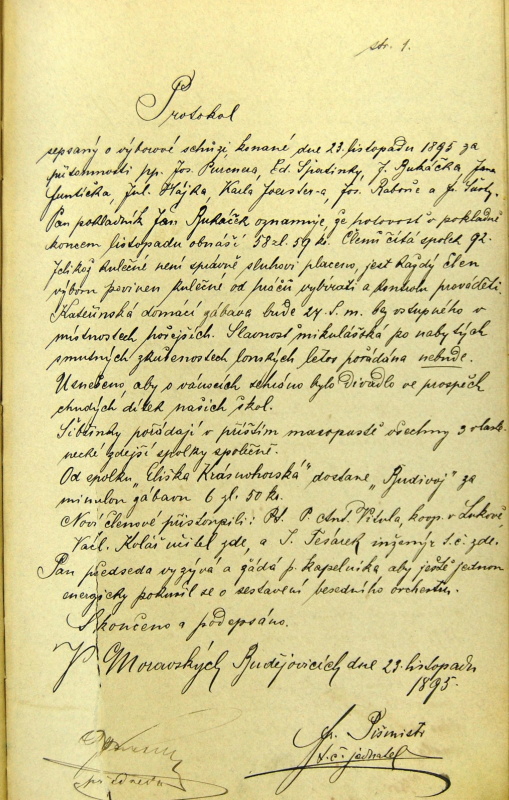 str. 1.
Protokol
sepsaný o výborové schůzi konané dne 23. listopadu 1895 za
přítomnosti pp. Jos. Ed. Špatinky, J. Rukáčka, Jana
Funtíčka, Jul. Hájka, Karla Jos. Raboně a Fr.
Pan pokladník Jan Rukáček oznamuje, že hotovost v pokladně
koncem listopadu obnáší 58 zl. 59 kr. Členů čítá spolek 92.
Jelikož kulečné není správně sluhovi placeno, jest každý člen
výboru povinen kulečné od hráčů vybírati a kontrolu prováděti.
Kateřinská domácí zábava bude 24. t. m. bez vstupného v
místnostech hořejších. Slavnost mikulášská po nabytých
smutných zkušenostech loňských letos pořádána nebude.
Usneseno aby o vánocích sehráno bylo divadlo ve prospěch
chudých dítek našich škol.
Šibřinky pořádají v příštím masopustě všechny 3 vlaste-
necké zdejší spolky společně.
Od spolku „Eliška Krásnohorská" dostane „Budivoj" za
minulou zábavu 6 zl. 50 kr.
Noví členové přistoupili: Pt. P. Ant. Vitula, koop. v Lukově,
Václ. Kolář učitel zde, a T. Tesárek inženýr t. č. zde.
Pan předseda vyzývá a žádá p. kapelníka aby ještě jednou
energicky pokusil se o sestavení besedního orchestru.
Skončeno a podepsáno.
V Moravských Budějovicích dne 23. listopadu
1895.
Fr. Pišmistr
t. č. jednatel
předseda